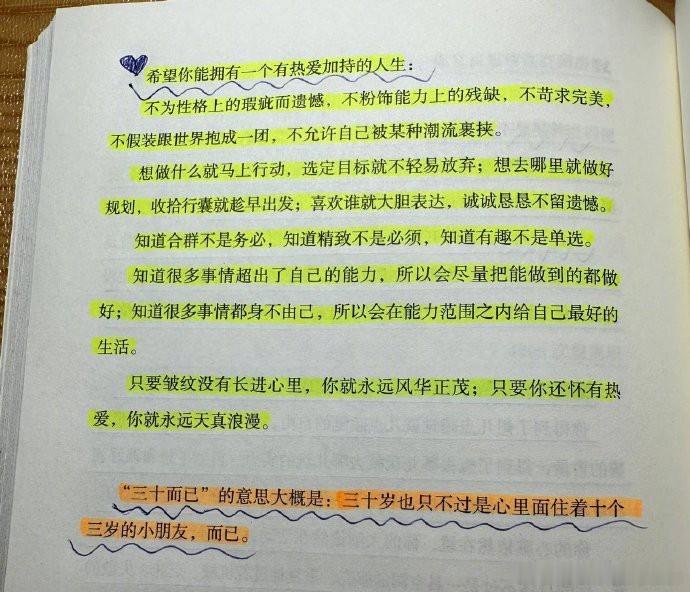 希望你能拥有一个有热爱加持的人生：
不为性格上的瑕疵而遗憾，不粉饰能力上的残缺，不苛求完美，
不假装跟世界抱成一团，不允许自己被某种潮流裹挟。
想做什么就马上行动，选定目标就不轻易放弃；想去哪里就做好
规划，收拾行囊就趁早出发；喜欢谁就大胆表达，诚诚恳恳不留遗憾。
知道合群不是务必，知道精致不是必须，知道有趣不是单选。
知道很多事情超出了自己的能力，所以会尽量把能做到的都做
好；知道很多事情都身不由己，所以会在能力范围之内给自己最好的
生活。
只要皱纹没有长进心里，你就永远风华正茂；只要你还怀有热
爱，你就永远天真浪漫。
“三十而已”的意思大概是：三十岁也只不过是心里面住着十个
三岁的小朋友，而已。